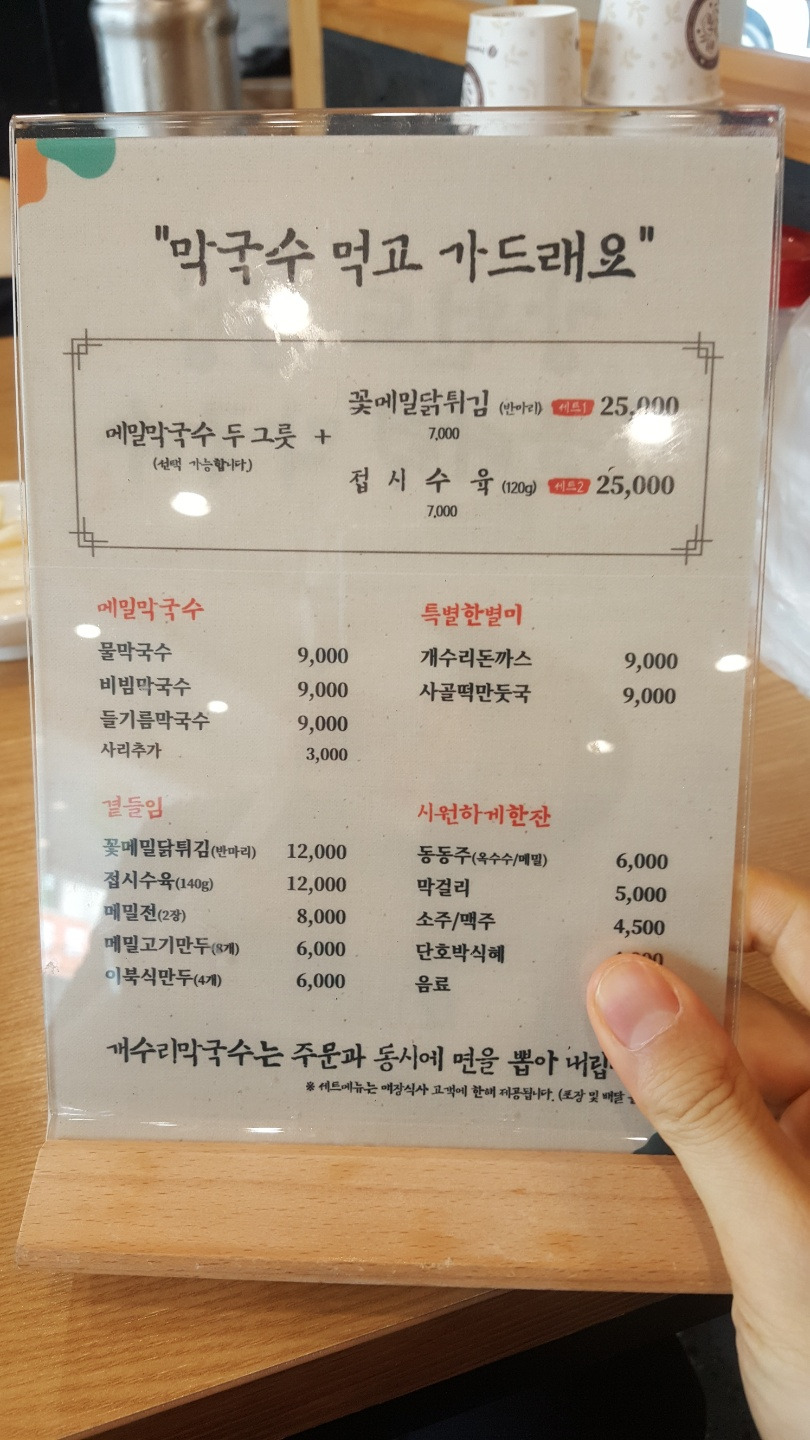 "막국수 먹고 가드래요"
메밀막국수 두 그릇 +
(선택 가능합니다.)
꽃메밀닭튀김 (반마리) 세트1 25,000
7,000
접시 수육 (120g) 세트2 25,000
7,000
메밀막국수
물막국수 9,000
비빔막국수 9,000
들기름막국수 9,000
사리추가 3,000
특별한별미
개수리돈까스 9,000
사골떡만둣국 9,000
곁들임
꽃메밀닭튀김(반마리) 12,000
접시수육(140g) 12,000
메밀전(2장) 8,000
메밀고기만두(8개) 6,000
이북식만두(4개) 6,000
시원하게한잔
동동주(옥수수/메밀) 6,000
막걸리 5,000
소주/맥주 4,500
단호박식혜
음료
개수리막국수는 주문과 동시에 면을 뽑아
※ 세트메뉴는 매장식사 고객에 한해 제공됩니다. (포장 및 배달